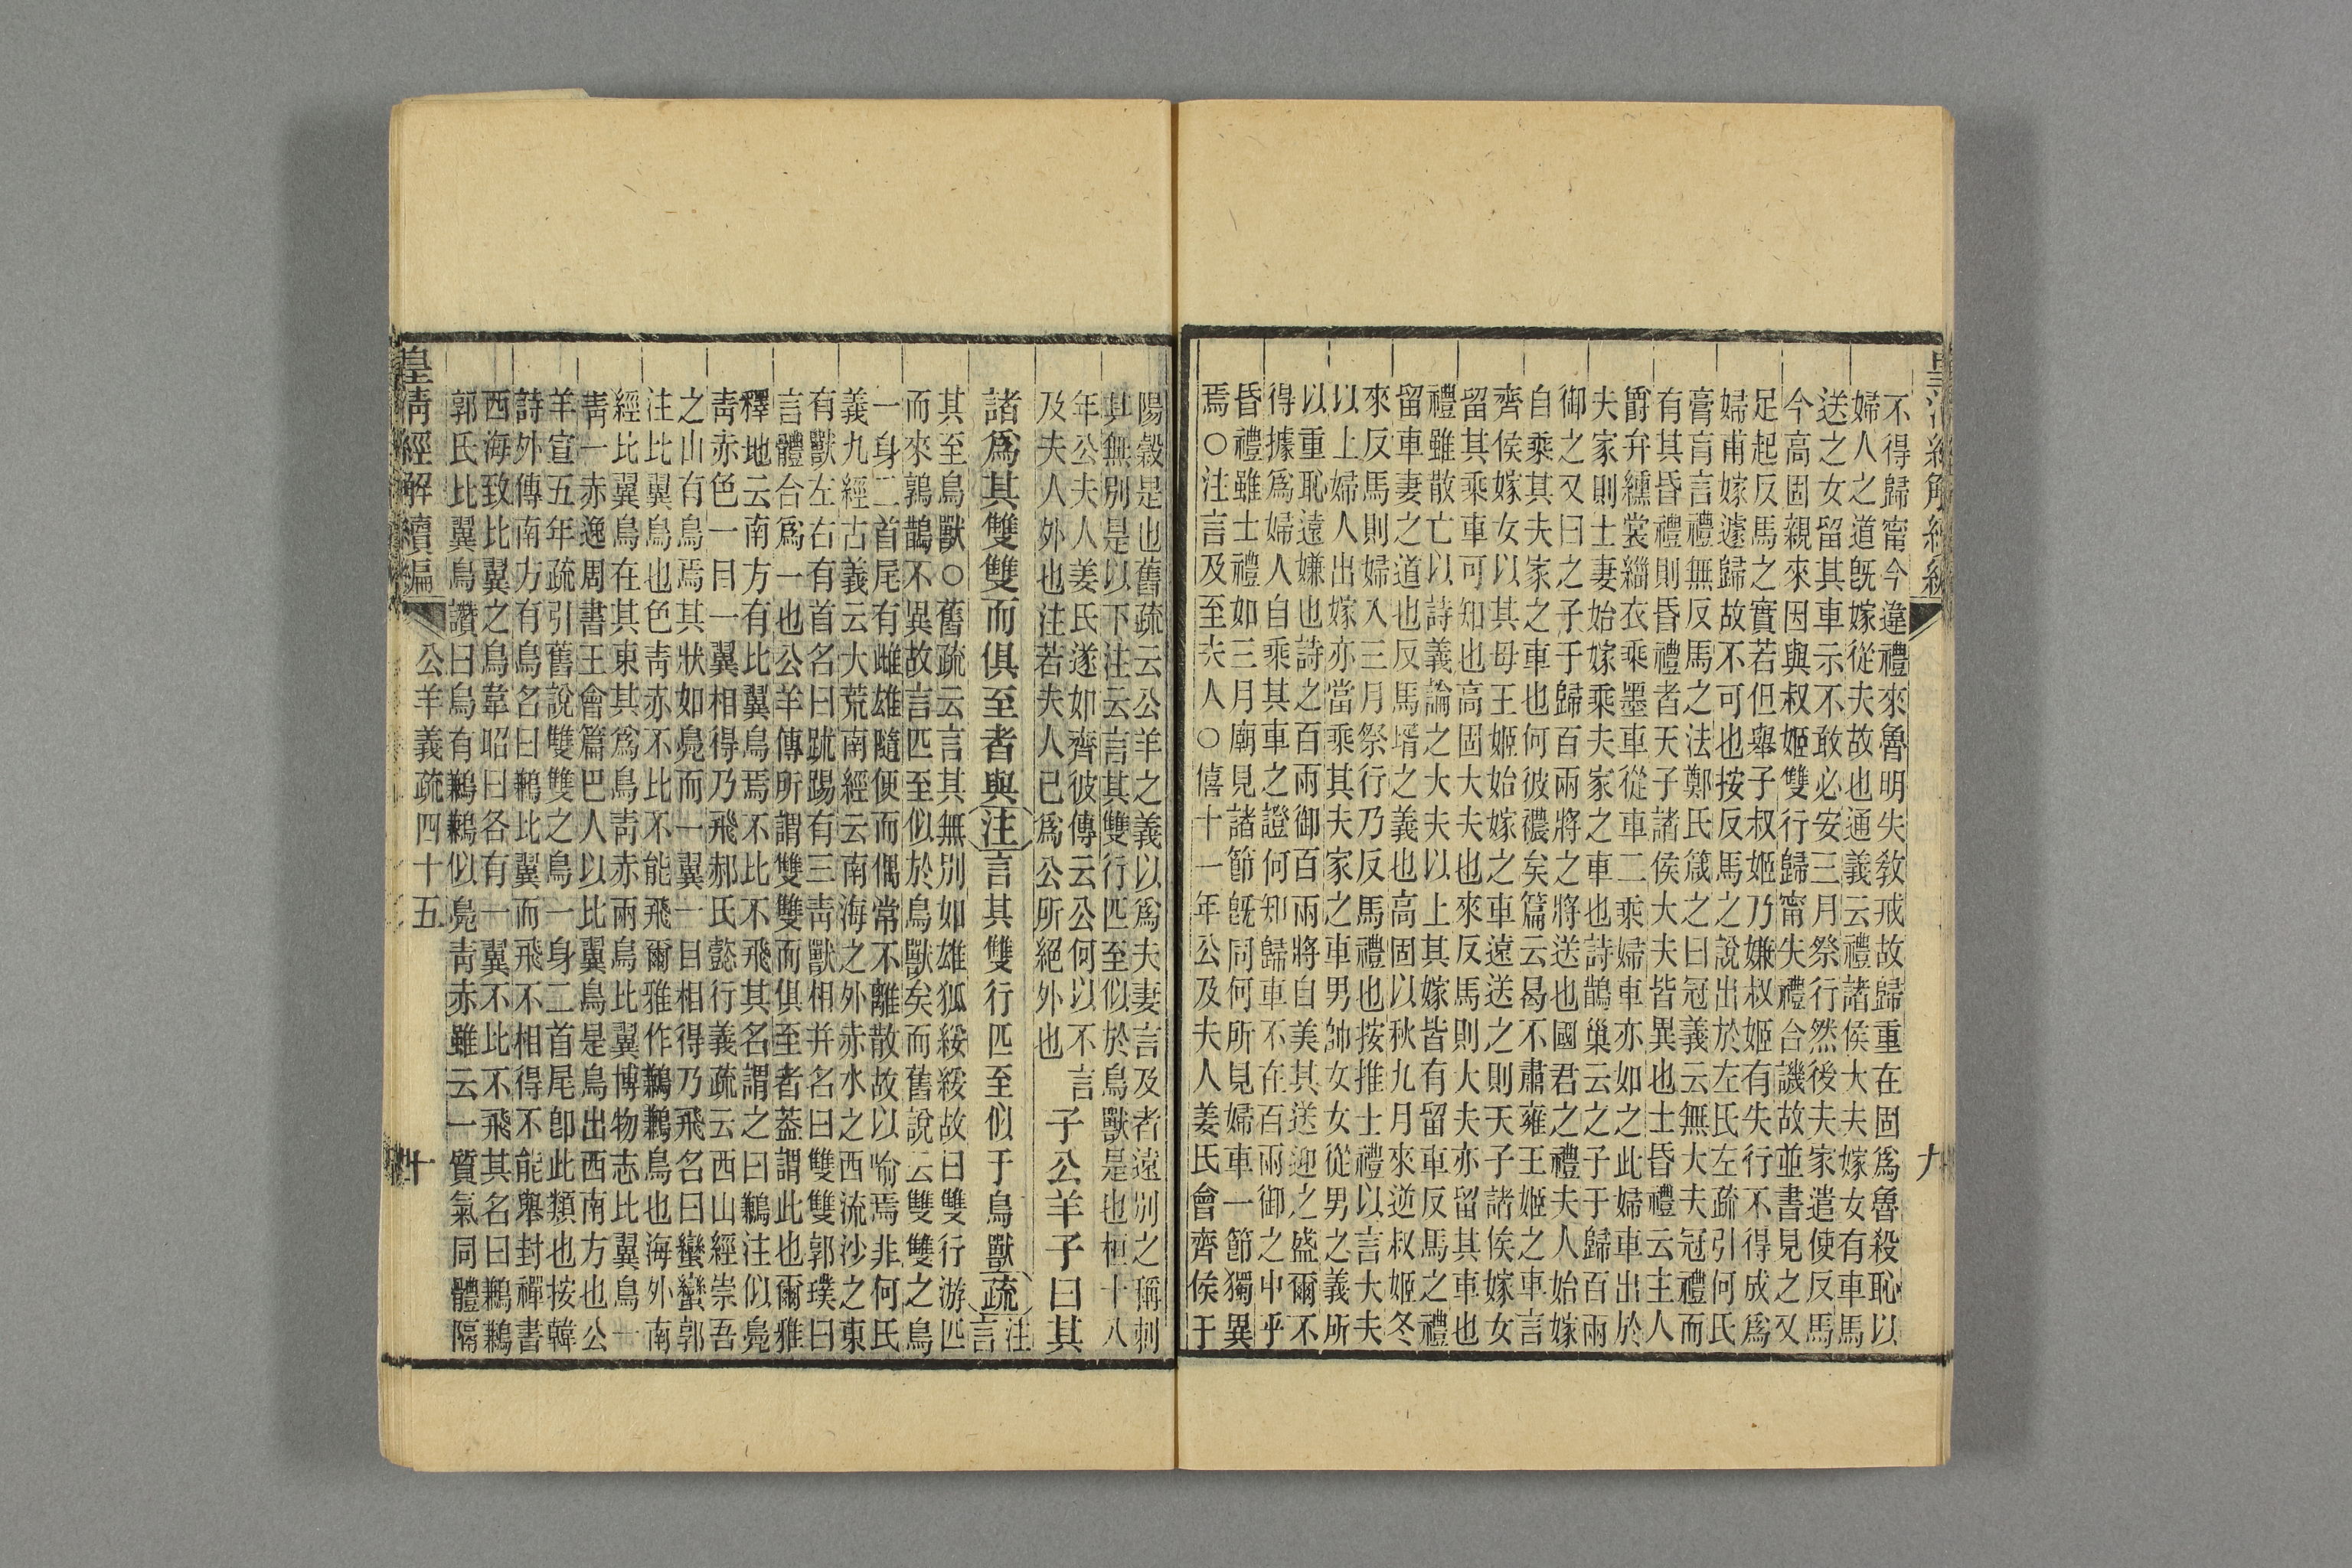 不得歸甯今違禮來魯明失敎戒故歸重在固爲魯殺恥以
婦人之道旣嫁從夫故也通義云禮諸侯大夫嫁女有車馬
送之女留其車示不敢必安三月祭行然後夫家遣使反馬
今高固親來因與叔姬雙行歸甯失禮合譏故並書見之又
足起反馬之實若但舉子叔姬乃嫌叔姬有失行不得成爲
婦甫嫁遽歸故不可也按反馬之說出於左氏左疏引何氏
膏肓言禮無反馬之法鄭氏箴之曰冠義云無大夫冠禮而
有其昏禮則昏禮者天子諸侯大夫皆異也士昏禮云主人
爵弁纁裳緇衣乘墨車從車二乘婦車亦如之此婦車出於
夫家則士妻始嫁乘夫家之車也詩鵲巢云之子于歸百兩
御之又曰之子于歸百兩將之將送也國君之禮夫人始嫁
自乘其夫家之車也何彼襛矣篇云曷不肅雍王姬之車言
齊侯嫁女以其母王姬始嫁之車遠送之則天子諸侯嫁女
留其乘車可知也高固大夫也來反馬則大夫亦留其車也
禮雖散亡以詩義論之大夫以上其嫁皆有留車反馬之禮
留車妻之道也反馬壻之義也高固以秋九月來逆叔姬冬
來反馬則婦入三月祭行乃反馬禮也按推士禮以言大夫
以上婦人出嫁亦當乘其夫家之車男帥女女從男之義所
以重恥遠嫌也詩之百兩御百兩將自美其送迎之盛爾不
得據爲婦人自乘其車之證何知歸車不在百兩御之中乎
昏禮雖士禮如三月廟見諸節旣同何所見婦車一節獨異
焉○注言及至夫人○僖十一年公及夫人姜氏會齊侯于
九
陽穀是也舊疏云公羊之義以爲夫妻言及者遠別之稱刺
其無別是以下注云言其雙行匹至似於鳥獸是也桓十八
年公夫人姜氏遂如齊彼傳云公何以不言
及夫人外也注若夫人已爲公所絕外也
子公羊子曰其
諸爲其雙雙而俱至者與注言其雙行匹至似于鳥獸疏注言
其至鳥獸○舊疏云言其無別如雄狐綏綏故曰雙行游匹
而來鶉鵲不異故言匹至似於鳥獸矣而舊說云雙雙之鳥
一身二首尾有雌雄隨便而偶常不離散故以喻焉非何氏
義九經古義云大荒南經云南海之外赤水之西流沙之東
有獸左右有首名曰䟣踢有三靑獸相并名曰雙雙郭璞曰
言體合爲一也公羊傳所謂雙雙而俱至者葢謂此也爾雅
釋地云南方有比翼鳥焉不比不飛其名謂之曰鶼注似鳧
靑赤色一目一翼相得乃飛郝氏懿行義疏云西山經崇吾
之山有鳥焉其狀如鳧而一翼一目相得乃飛名曰蠻蠻郭
注比翼鳥也色靑赤不比不能飛爾雅作鶼鶼鳥也海外南
經比翼鳥在其東其爲鳥靑赤兩鳥比翼博物志比翼鳥一
靑一赤逸周書王會篇巴人以比翼鳥是鳥出西南方也公
羊宣五年疏引舊說雙雙之鳥一身二首尾卽此類也按韓
詩外傳南方有鳥名曰鶼比翼而飛不相得不能舉封禪書
西海致比翼之鳥韋昭曰各有一翼不比不飛其名曰鶼鶼
郭氏比翼鳥讚曰鳥有鶼鶼似鳧靑赤雖云一質氣同體隔
皇淸經解續編
公羊義疏四十五
十